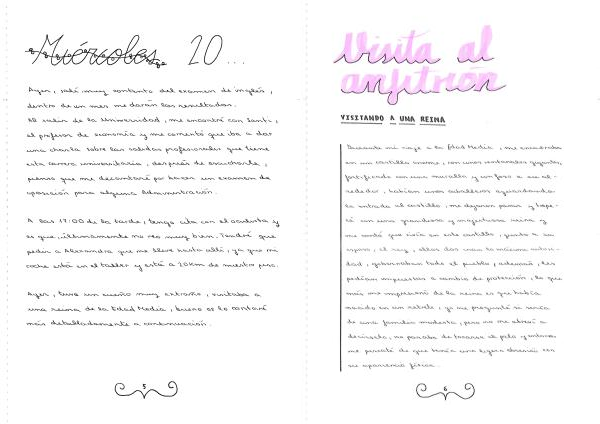 Miércoles 20...
Ayer, salí muy contenta del examen de inglés,
dentro de un mes me darán los resultados.
Al salir de la Universidad, me encontré con Santi,
el profesor de economía y me comentó que iba a dar
una charla sobre las salidas profesionales que tiene
esta carrera universitaria, después de escucharle,
pienso que me decantaré por hacer un examen de
oposición para alguna Administración.
A las 17:00 de la tarde, tengo cita con el oculista y
es que, últimamente no veo muy bien. Tendré que
pedir a Alexandra que me lleve hasta allí, ya que mi
coche está en el taller y está a 20km de nuestro piso.
Ayer, tuve un sueño muy extraño, visitaba a
una reina de la Edad Media, bueno os lo contaré
más detalladamente a continuación.
5
Visita al
anfitrión
VISITANDO A UNA REINA
Durante mi viaje a la Edad Media, me encontraba
en un castillo enorme, con unos ventanales gigantes,
fortificado con una muralla y un foso a su al-
rededor, habían unos caballeros aguardando
la entrada al castillo, me dejaron pasar y topé
con una grandiosa y majestuosa reina y
me contó que vivía en este castillo, junto a su
esposo, el rey, ellos dos eran la máxima autori-
dad, gobernaban todo el pueblo, además, les
pedían impuestos a cambio de protección, lo que
más me impresionó de la reina es que había
en un retrato, yo me pregunté si sería
de una familia modesta, pero no me atreví a
decírselo, no paraba de tocarse el pelo y entonces
me percaté de que tenía una ligera obsesión con
su apariencia física.
6